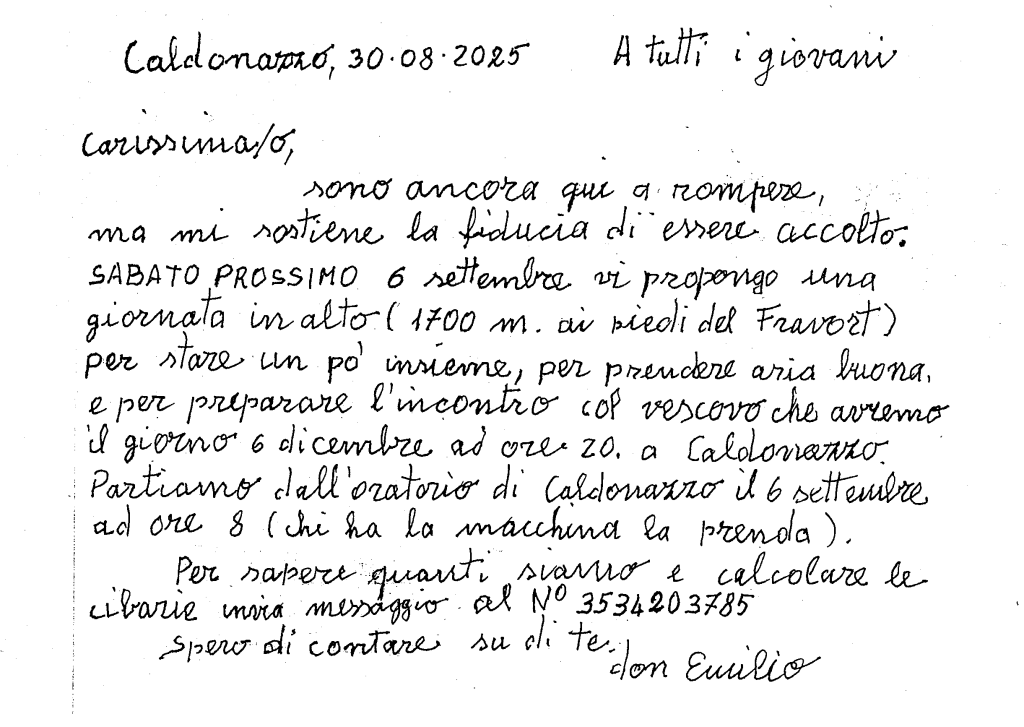 Caldonazzo, 30.08.2025 A tutti i giovani
Carissima/o,
sono ancora qui a rompere,
ma mi sostiene la fiducia di essere accolto.
SABATO PROSSIMO 6 settembre vi propongo una
giornata in alto (1700 m. ai piedi del Fravort)
per stare un pò insieme, per prendere aria buona,
e per preparare l'incontro col vescovo che avremo
il giorno 6 dicembre ad ore 20. a Caldonazzo.
Partiamo dall'oratorio di Caldonazzo il 6 settembre
ad ore 8 (chi ha la macchina la prenda).
Per sapere quanti siamo e calcolare le
cibarie invia messaggio al N° 3534203785
Spero di contare su di te.
don Emilio